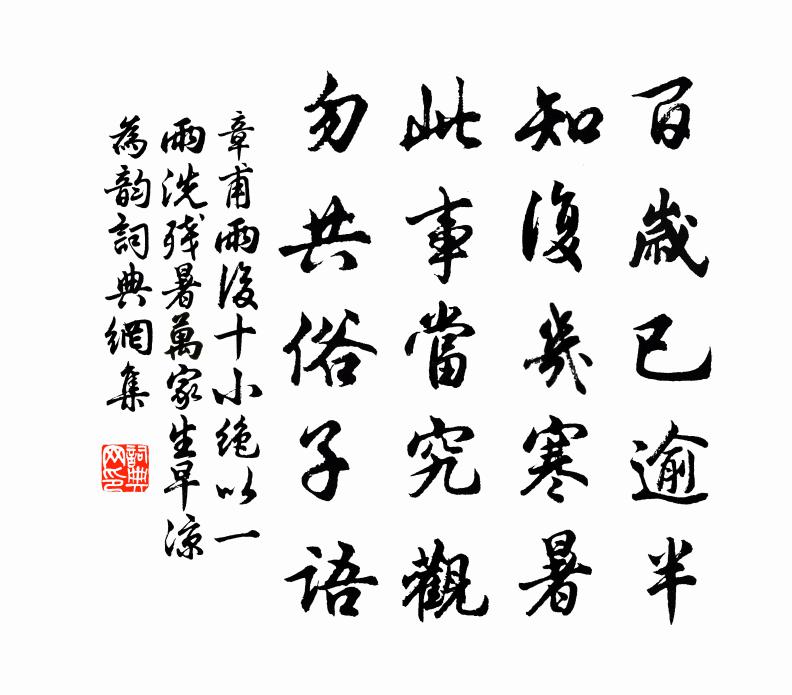 百歲已逾半
知復幾寒暑
此事當究觀
勿共俗子語
章甫雨後十小絶以一
雨洗殘暑萬家生早涼
為韵詞典網集
詞典网印